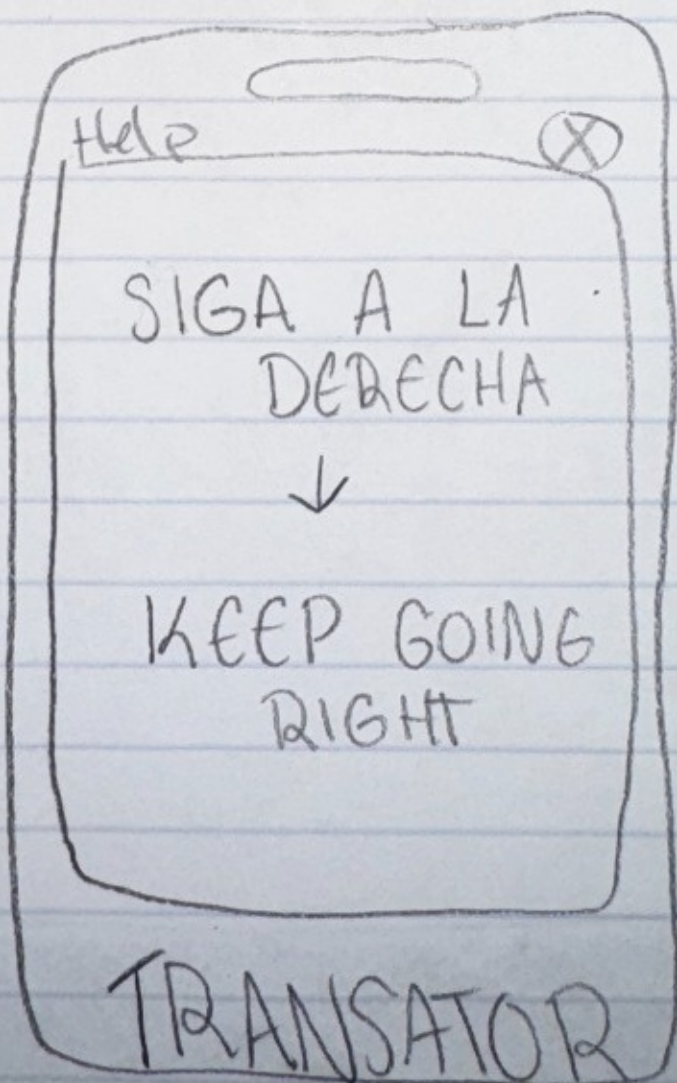 Help X
SIGA A LA
DERECHA
↓
KEEP GOING
RIGHT
TRANSATOR